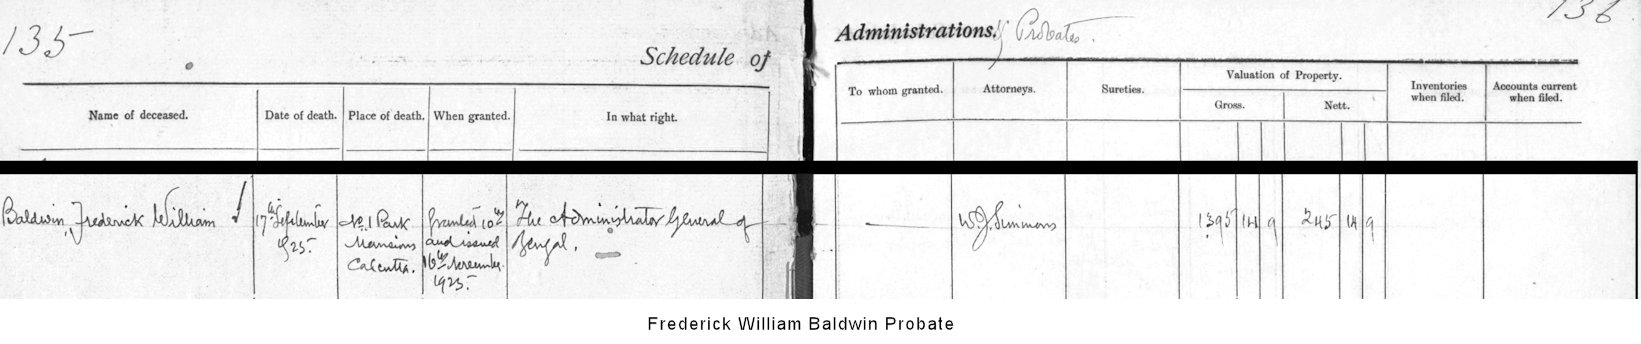 135
136
Schedule of
Administrations. & Probates.
Name of deceased.
Date of death.
Place of death.
When granted.
In what right.
To whom granted.
Attorneys.
Sureties.
Valuation of Property.
Gross.
Nett.
Inventories
when filed.
Accounts current
when filed.
Baldwin, Frederick William
17th September
1925.
No. 1 Park
Mansions
Calcutta.
Granted 10th
and issued
16th November
1925.
The Administrator General of
Bengal.
W. J. Simmons
1395 14 9
245 14 9
Frederick William Baldwin Probate